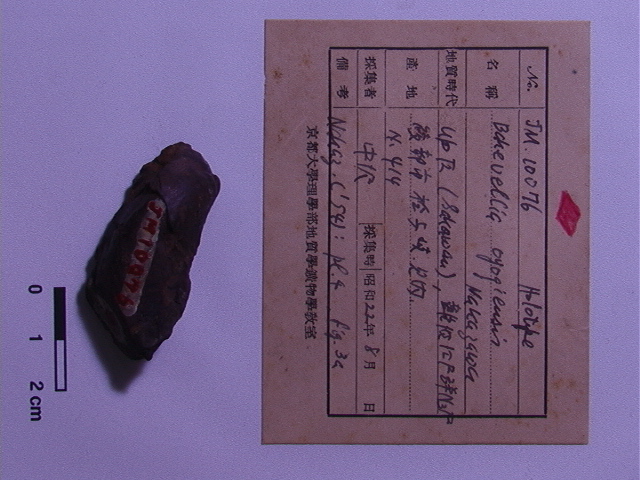 No. JM. 10076 Holotype
名稱 Bakevellia oyogiensis
Nakazawa
地質時代 Up. R (Sakawan),
產地
N. 414
採集者 中沢 採集時 昭和22年 8月 日
備考 Nakaz. ('54): pl. 4 fig. 3a
京都大學理學部地質學鑛物學教室
JM10076
0 1 2 cm